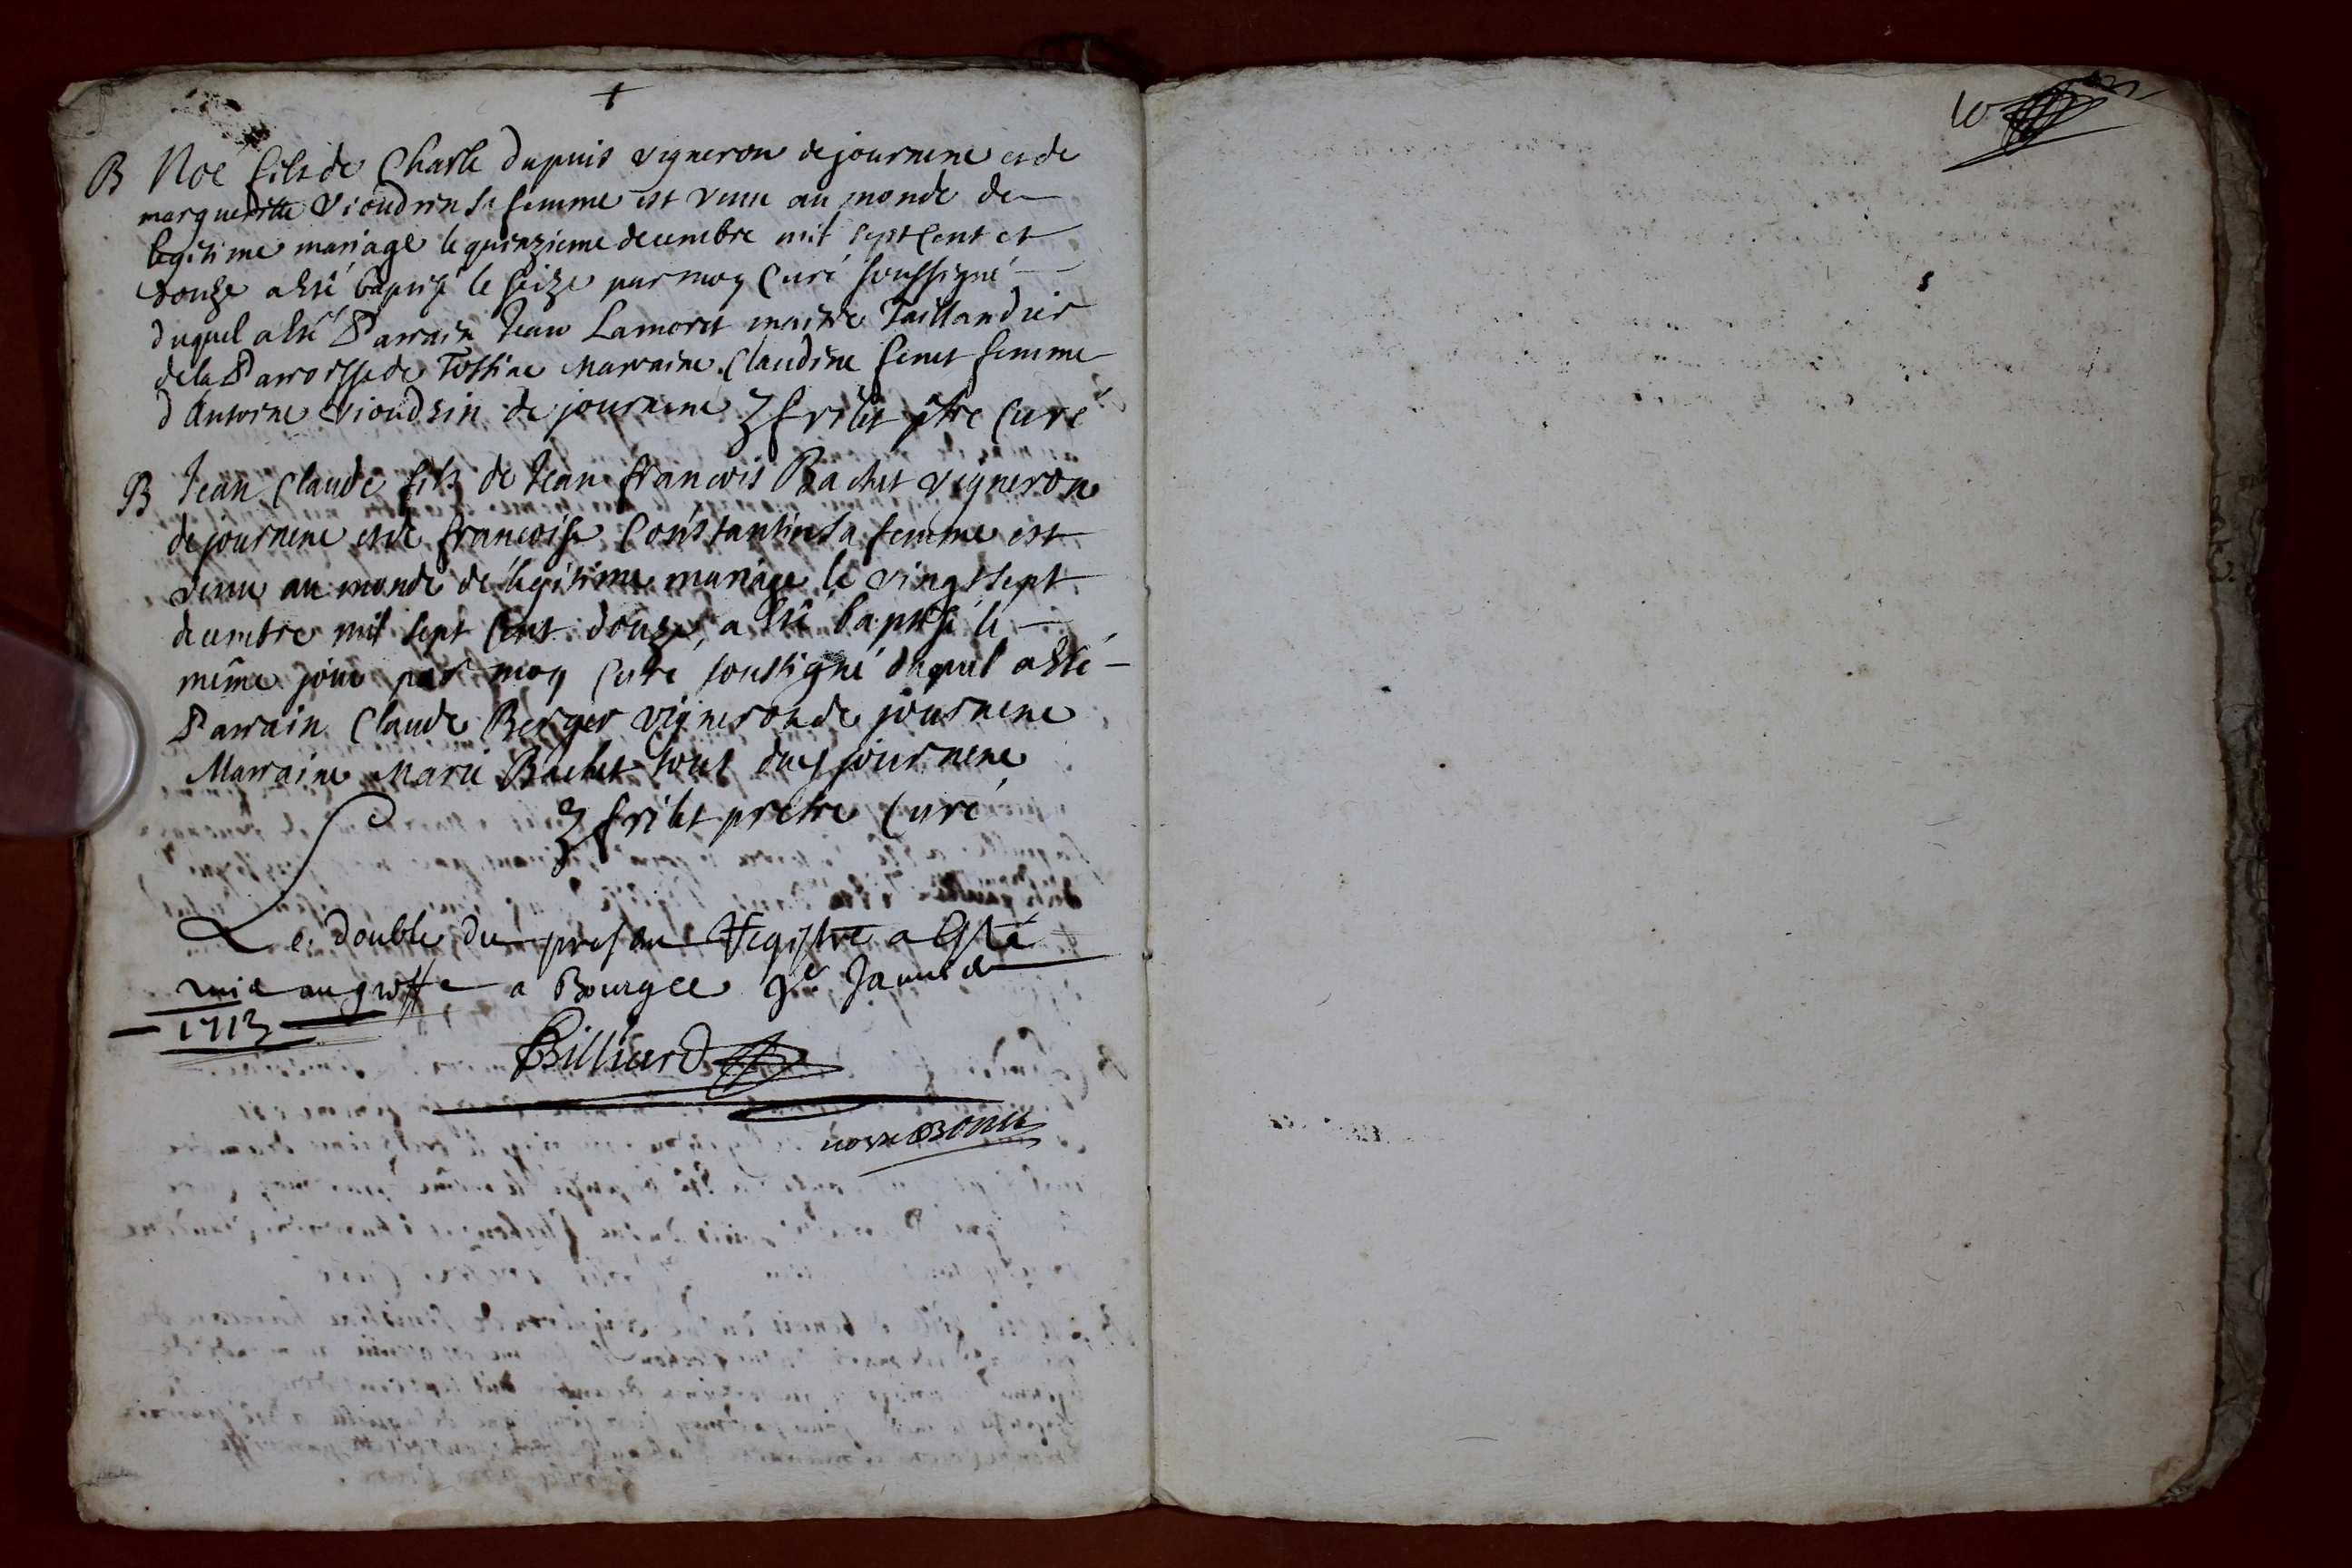 +
B Noé fils de Charle dupuis vigneron de journene et de
margueritte vioudrin sa femme est venu au monde de
legitime mariage le quinzieme decembre mil sept cent et
douze a esté baptisé le seize par moy Curé soussigné
duquel a esté Parrain Jean Lamoret maitre Taillandier
de la Parroisse de Tossiae Marraine Claudine femme
d'Antoine vioudrin de journene frilet ptre Curé
B Jean Claude fils de Jean francois Bachet vigneron
de journene et de francoise Constantin sa femme est
venu au monde de legitime mariage le vingt sept
decembre mil sept cent douze, a esté baptisé le
même jour par moy Curé soussigné duquel a esté
Parrain Claude Berger vigneron de journene
Marraine Marie Bachet tous journene
frilet prêtre Curé
Le double du presan Registre a Esté
mis au greffe a Bourg ce Janvier
1713
Billiard
Bonet
10